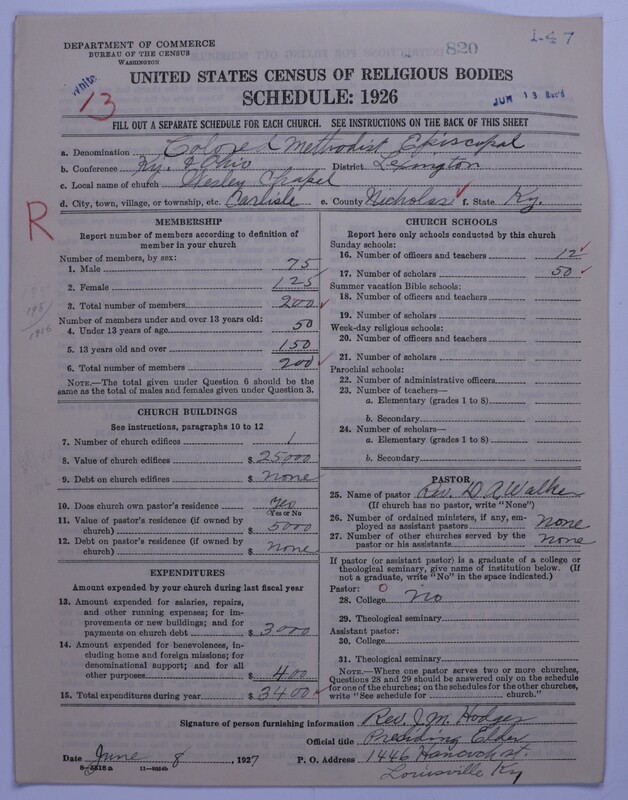 DEPARTMENT OF COMMERCE
BUREAU OF THE CENSUS
WASHINGTON
820
1-47
White
13
UNITED STATES CENSUS OF RELIGIOUS BODIES
SCHEDULE: 1926
JUN 13 Rec'd
FILL OUT A SEPARATE SCHEDULE FOR EACH CHURCH. SEE INSTRUCTIONS ON THE BACK OF THIS SHEET
a. Denomination Colored Methodist Episcopal
b. Conference Ky. & Ohio District Lexington
c. Local name of church Wesley Chapel
d. City, town, village, or township, etc. Carlisle e. County Nicholas f. State Ky.
R
MEMBERSHIP
Report number of members according to definition of member in your church
Number of members, by sex:
1. Male 75
2. Female 125
3. Total number of members 200
Number of members under and over 13 years old:
4. Under 13 years of age 50
5. 13 years old and over 150
6. Total number of members 200
NOTE.—The total given under Question 6 should be
same as the total of males and females given under Question 3.
CHURCH BUILDINGS
See instructions, paragraphs 10 to 12
7. Number of church edifices 1
8. Value of church edifices $ 25000
9. Debt on church edifices $ none
10. Does church own pastor's residence yes
(Yes or No)
11. Value of pastor's residence (if owned by
church) $ 5000
12. Debt on pastor's residence (if owned by
church) $ none
EXPENDITURES
Amount expended by your church during last fiscal year
13. Amount expended for salaries, repairs,
and other running expenses; for im-
provements or new buildings; and for
payments on church debt $ 3000
14. Amount expended for benevolences, in-
cluding home and foreign missions; for
denominational support; and for all
other purposes $ 400
15. Total expenditures during year $ 3400
CHURCH SCHOOLS
Report here only schools conducted by this church
Sunday schools:
16. Number of officers and teachers 12
17. Number of scholars 50
Summer vacation Bible schools:
18. Number of officers and teachers
19. Number of scholars
Week-day religious schools:
20. Number of officers and teachers
21. Number of scholars
Parochial schools:
22. Number of administrative officers
23. Number of teachers—
a. Elementary (grades 1 to 8)
b. Secondary
24. Number of scholars—
a. Elementary (grades 1 to 8)
b. Secondary
PASTOR
25. Name of pastor Rev. D A Walker
(If church has no pastor, write "None")
26. Number of ordained ministers, if any, em-
ployed as assistant pastors None
27. Number of other churches served by the
pastor or his assistants none
If pastor (or assistant pastor) is a graduate of a college or
theological seminary, give name of institution below. (If
not a graduate, write "No" in the space indicated.)
Pastor: 0
28. College no
29. Theological seminary
Assistant pastor:
30. College
31. Theological seminary
NOTE.—Where one pastor serves two or more churches,
Questions 28 and 29 should be answered only on the schedule
for one of the churches; on the schedules for the other churches,
write "See schedule for church."
Signature of person furnishing information Rev. J. M. Hodges
Official title Presiding Elder
Date June 8, 1927 P. O. Address 1446 Hancock st.
Louisville Ky